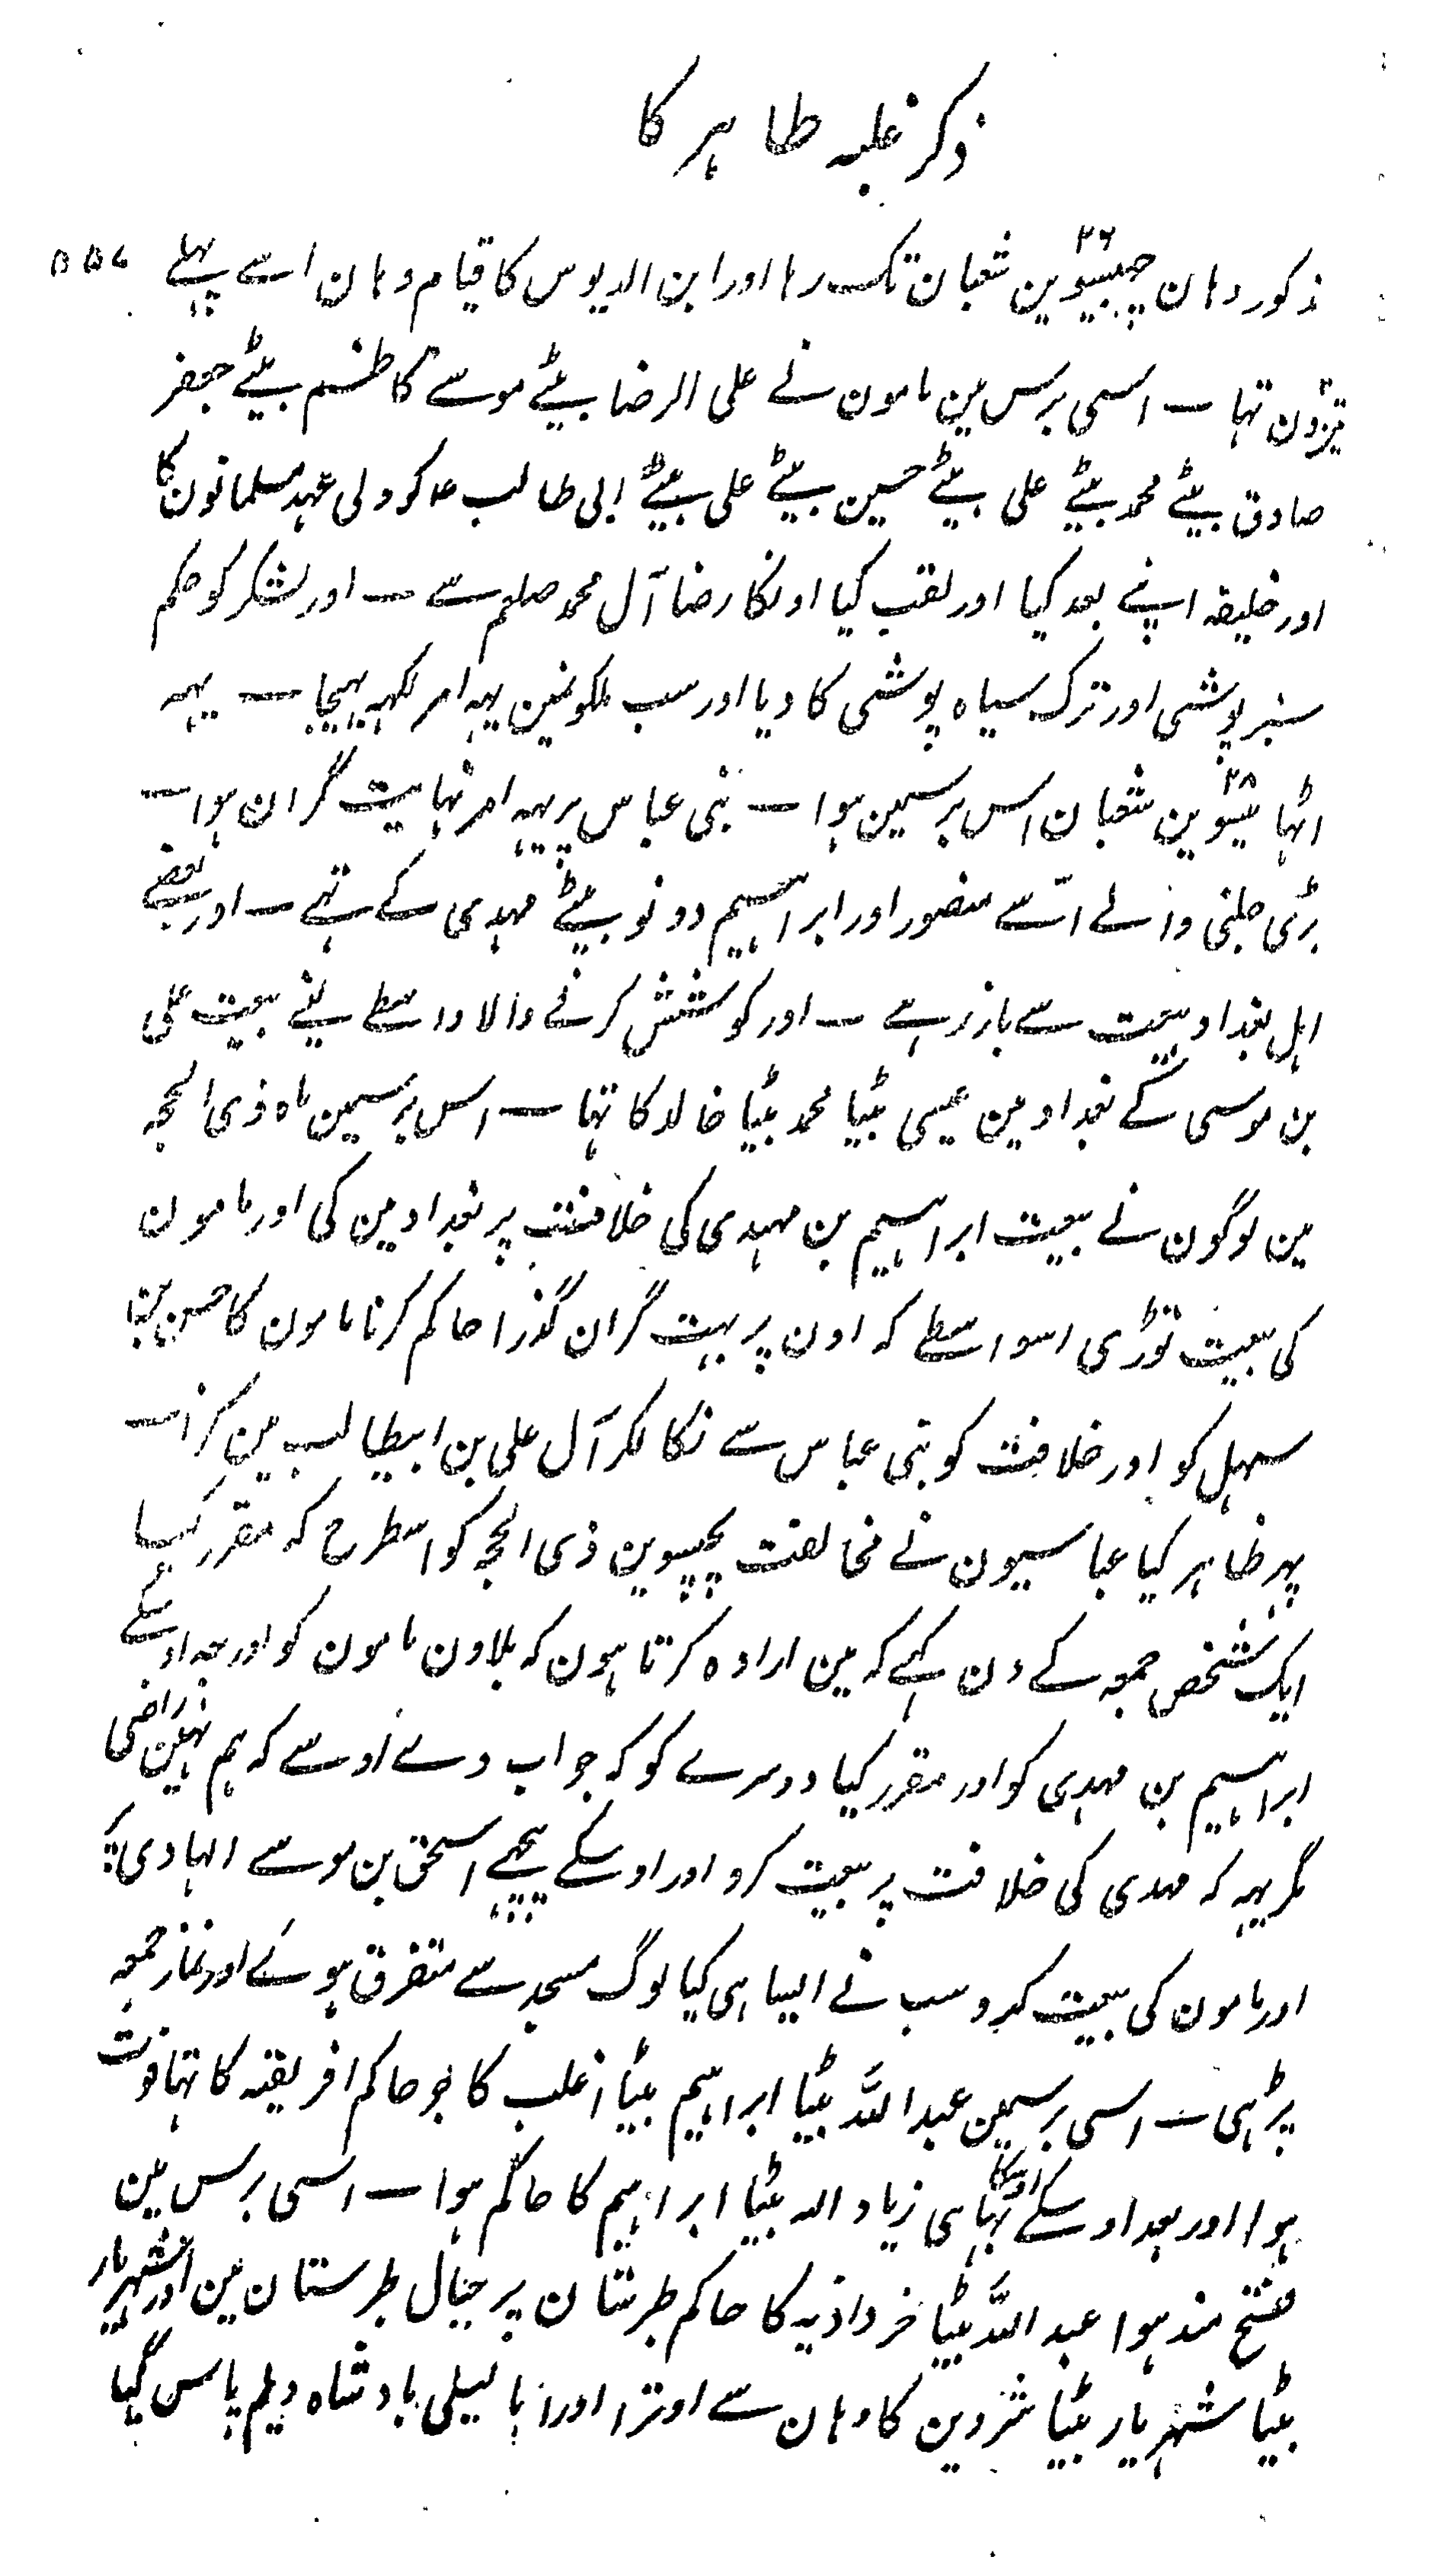 ذکر غلبہ طاہر کا
۵۵۷
ذکور وہان چھبیسوین ۲۶ شعبان تک رہا اور ابن الدیوس کا قیام وہان اسے پہلے
تیرون تہا ۔ اسی برس مین مامون نے علی الرضا بیٹے موسے کاظم بیٹے جعفر
صادق بیٹے محمد بیٹے علی بیٹے حسین بیٹے علی بیٹے ابی طالب ع کو ولی عہد مسلمانون کا
اور خلیفہ اپنے بعد کیا اور لقب کیا اونکا رضا آل محمد صلعم سے ۔ اور لشکر کو حکم
سبز پوشی اور ترک سیاہ پوشی کا دیا اور سب ملکونمین یہہ امر لکہہ بہیجا ۔ یہہ
اٹہائیسوین ۲۸ شعبان اس برسمین ہوا ۔ بنی عباس پر یہہ امر نہایت گران ہوا ۔
بڑی جلنی والے اسّے منصور اور ابراہیم دونو بیٹے مہدی کے تہے ۔ اور بعضے
اہل بغداد بیعت سے باز رہے ۔ اور کوشش کرنے والا واسطے لینے بیعت علی
بن موسی کے بغداد مین عیسی بیٹا محمد بیٹا خالد کا تہا ۔ اس برسمین ماہ ذی الحجہ
مین لوگون نے بیعت ابراہیم بن مہدی کی خلافت پر بغداد مین کی اور مامون
کی بیعت توڑی اسواسطے کہ اون پر بہت گران گذرا حاکم کرنا مامون کا حسن بن
سہل کو اور خلافت کو بنی عباس سے نکالکر آل علی بن ابیطالب مین کرنا ۔
پہر ظاہر کیا عباسیون نے مخالفت پچیسوین ذی الحجہ کو اسطرح کہ مقرر کیا
ایک شخص جمعہ کے دن کہے کہ مین ارادہ کرتا ہون کہ بلاون مامون کو اور بعد اوسکے
ابراہیم بن مہدی کو اور مقرر کیا دوسرے کو کہ جواب دے اوسے کہ ہم نہین راضی
مگر یہہ کہ مہدی کی خلافت پر بیعت کرو اور اوسکے پیچہے اسحق بن موسے الہادی کی
اور مامون کی بیعت کرو سب نے ایسا ہی کیا لوگ مسجد سے متفرق ہوئے اور نماز جمعہ
پڑہی ۔ اسی برسمین عبد اللّٰہ بیٹا ابراہیم بیٹا اغلب کا جو حاکم افریقہ کا تہا فوت
ہوا اور بعد اوسکے اوسکا بہائی زیاد اللہ بیٹا ابراہیم کا حاکم ہوا ۔ اسی برس مین
فتح مند ہوا عبد اللّٰہ بیٹا خرداذبہ کا حاکم طبرستان پر جبال طبرستان مین اور شہریار
بیٹا شہریار بیٹا شروین کا وہان سے اوترا اور ابا لیلی بادشاہ دیلم پاس گیا